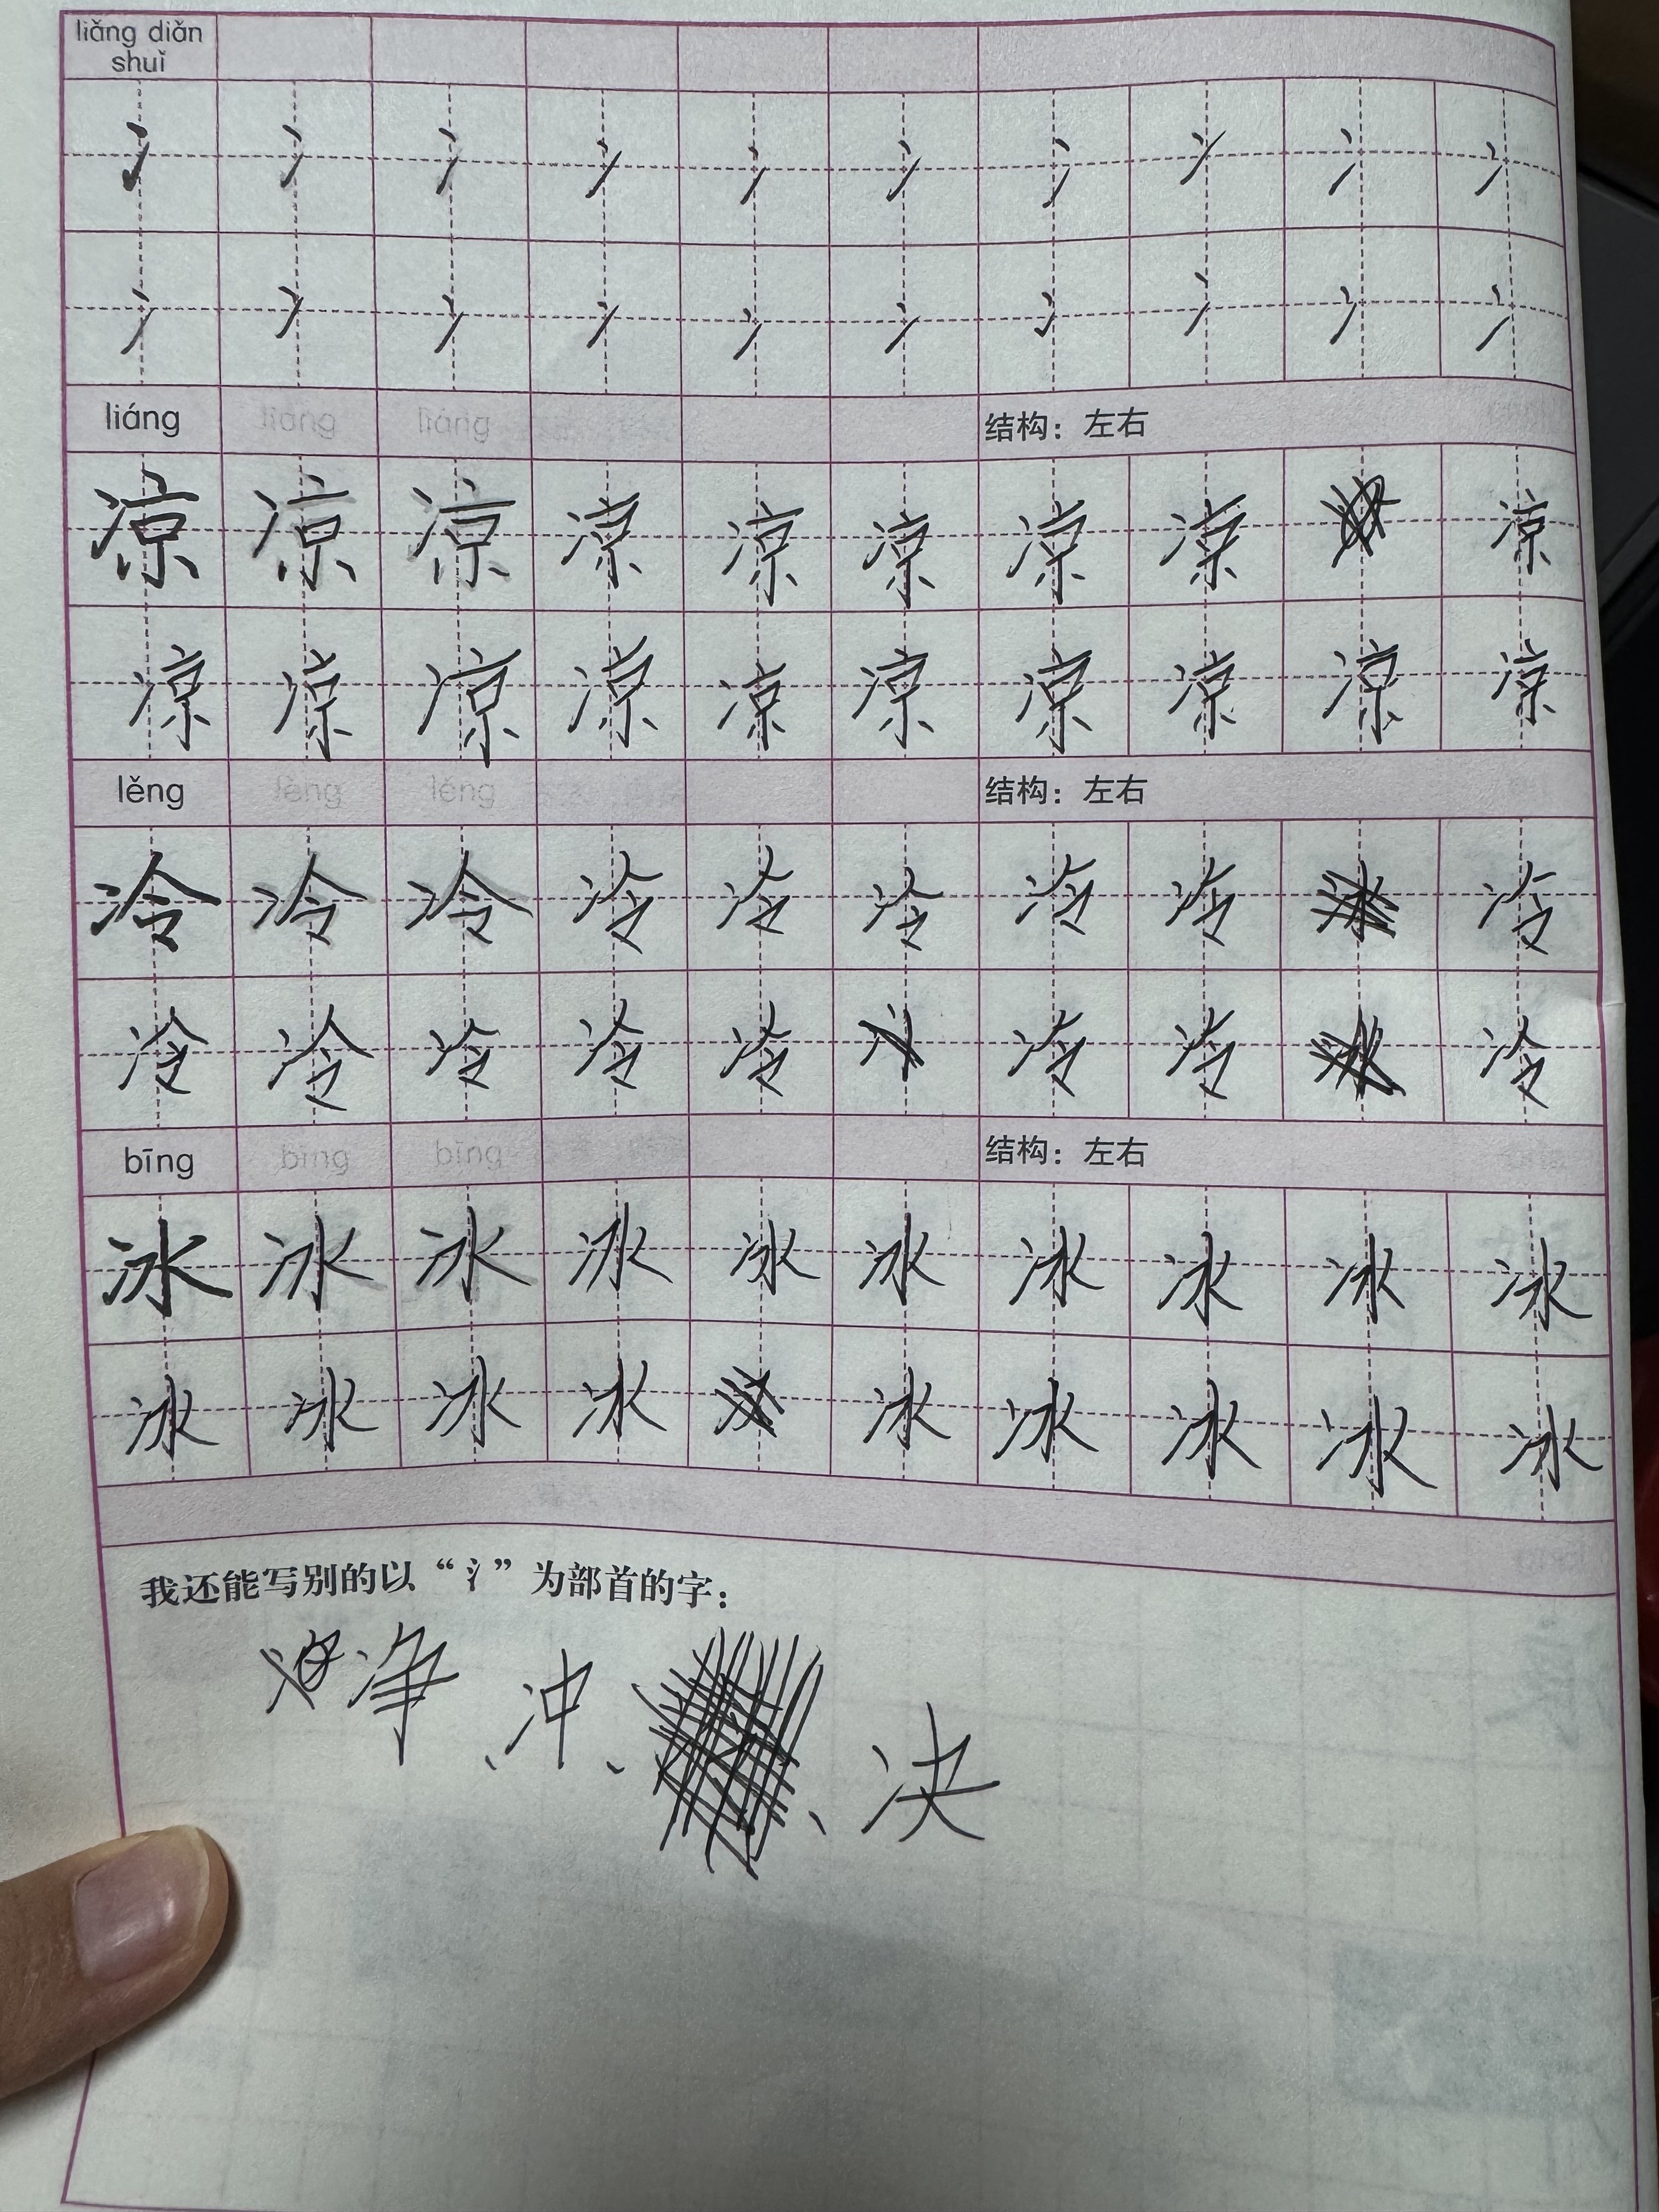 liǎng diǎn
shuǐ
冫 冫 冫 冫 冫 冫 冫 冫 冫 冫
冫 冫 冫 冫 冫 冫 冫 冫 冫 冫
liáng liáng liáng 结构：左右
凉 凉 凉 凉 凉 凉 凉 凉 凉
凉 凉 凉 凉 凉 凉 凉 凉 凉 凉
lěng lěng lěng 结构：左右
冷 冷 冷 冷 冷 冷 冷 冷 冷
冷 冷 冷 冷 冷 冷 冷 冷
bīng bīng bīng 结构：左右
冰 冰 冰 冰 冰 冰 冰 冰 冰 冰
冰 冰 冰 冰 冰 冰 冰 冰 冰
我还能写别的以“冫”为部首的字：
净、冲、、决